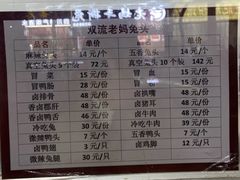 双流老妈兔头
品名 单价 品名 单价
麻辣兔头 14元/个 五香兔头 14元/个
真空兔头5个装 72元 真空兔头10个装 142元
冒菜 15元/份 冒血 10元/份
冒鸭肠 28元/份 冒脑花 15元/份
卤排骨 48元/份 卤拱嘴 48元/份
香卤郡肝 48元/份 卤猪耳 48元/份
香卤鸭舌 48元/份 卤牛肉 48元/份
冷吃兔 30元/份 冷吃牛肉 39元/份
微辣鸭头 7元/个 五香鸭头 7元/个
卤鸭翅 3元/只 卤鸡脚 12元/只
微辣兔腿 30元/只